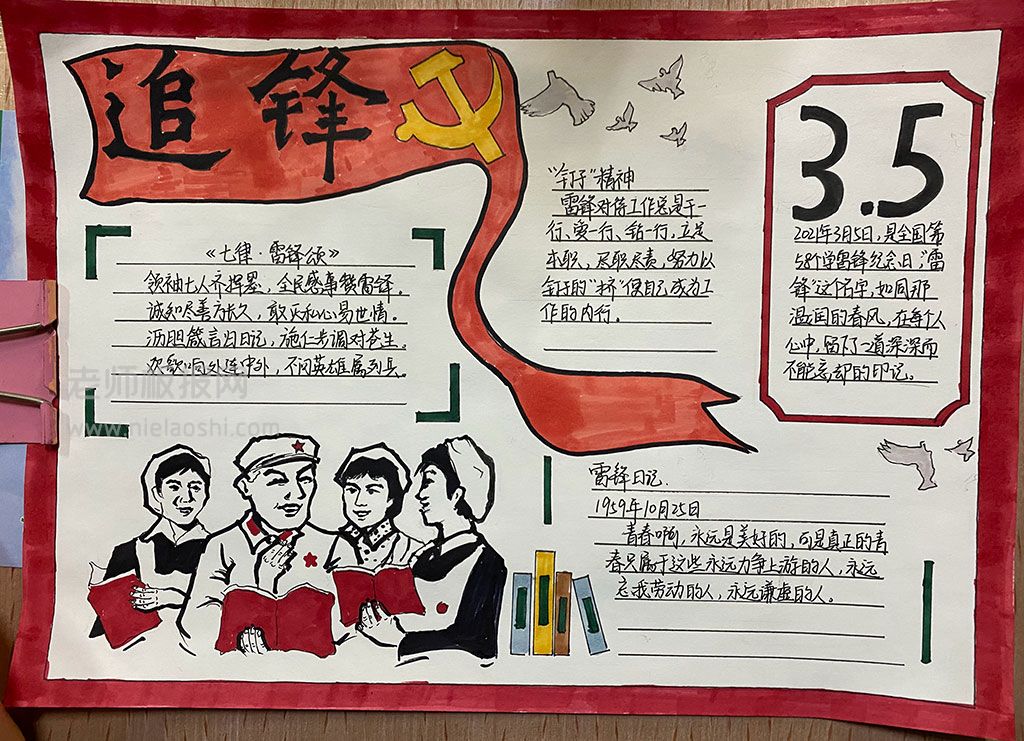 追锋
《七律·雷锋颂》
领袖七人齐挥墨，全民感事魏雷锋。
诚知尽善为长久，敢下和心易世情。
沥胆箴言归日记，施仁步调对苍生。
欢歌响处连中外，不问英雄属列兵
老师板报网
www.nielaoshi.com
"钉子"精神
雷锋对待工作总是干一
行、爱一行、钻一行，立足
本职，尽职尽责，努力以
钉子的"挤"使自己成为工
作的内行。
3.5
2021年3月5日，是全国第
58个学雷锋纪念日，"雷
锋"这个名字，如同那
温润的春风，在每个人
心中，留下了一道深深而
不能忘却的印记。
雷锋日记.
1959年10月25日
青春啊，永远是美好的，可是真正的青
春只属于这些永远力争上游的人，永远
忘我劳动的人，永远谦虚的人。